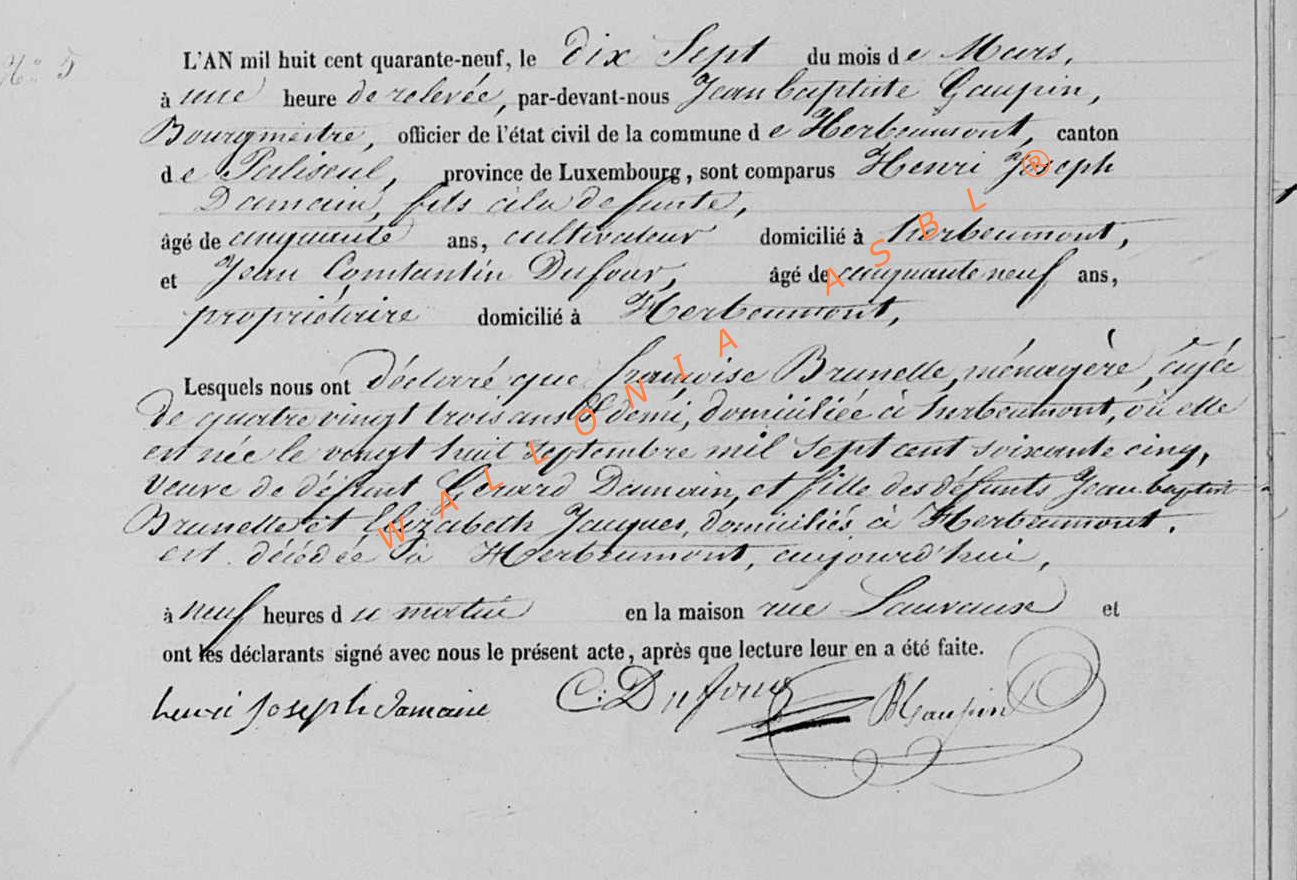 N.° 5
L'AN mil huit cent quarante-neuf, le dix Sept du mois de Mars,
à une heure de relevée, par-devant-nous Jean baptiste Gaupin,
Bourgmestre, officier de l'état civil de la commune de Herbeumont, canton
de Paliseul, province de Luxembourg, sont comparus Henri Joseph
Damain, fils à la defunte,
âgé de cinquante ans, cultivateur domicilié à herbeumont,
et Jean Constantin Dufour, âgé de cinquante neuf ans,
propriétaire domicilié à Herbeumont,
Lesquels nous ont déclaré que françoise Brunelle, ménagère, agée
de quatre vingt trois ans & demi, domiciliée à herbeumont, où elle
est née le vingt huit septembre mil sept cent soixante cinq,
veuve de défunt Gerard Damain, et fille des défunts Jean baptiste
Brunelle et Elizabeth Jacques, domiciliés à Herbeumont.
est décédée à Herbeumont, aujourd'hui,
à neuf heures du matin en la maison rue Lauvaux et
ont les déclarants signé avec nous le présent acte, après que lecture leur en a été faite.
henri joseph damain C: Dufour JBGaupin
WALLONIA ASBL ®